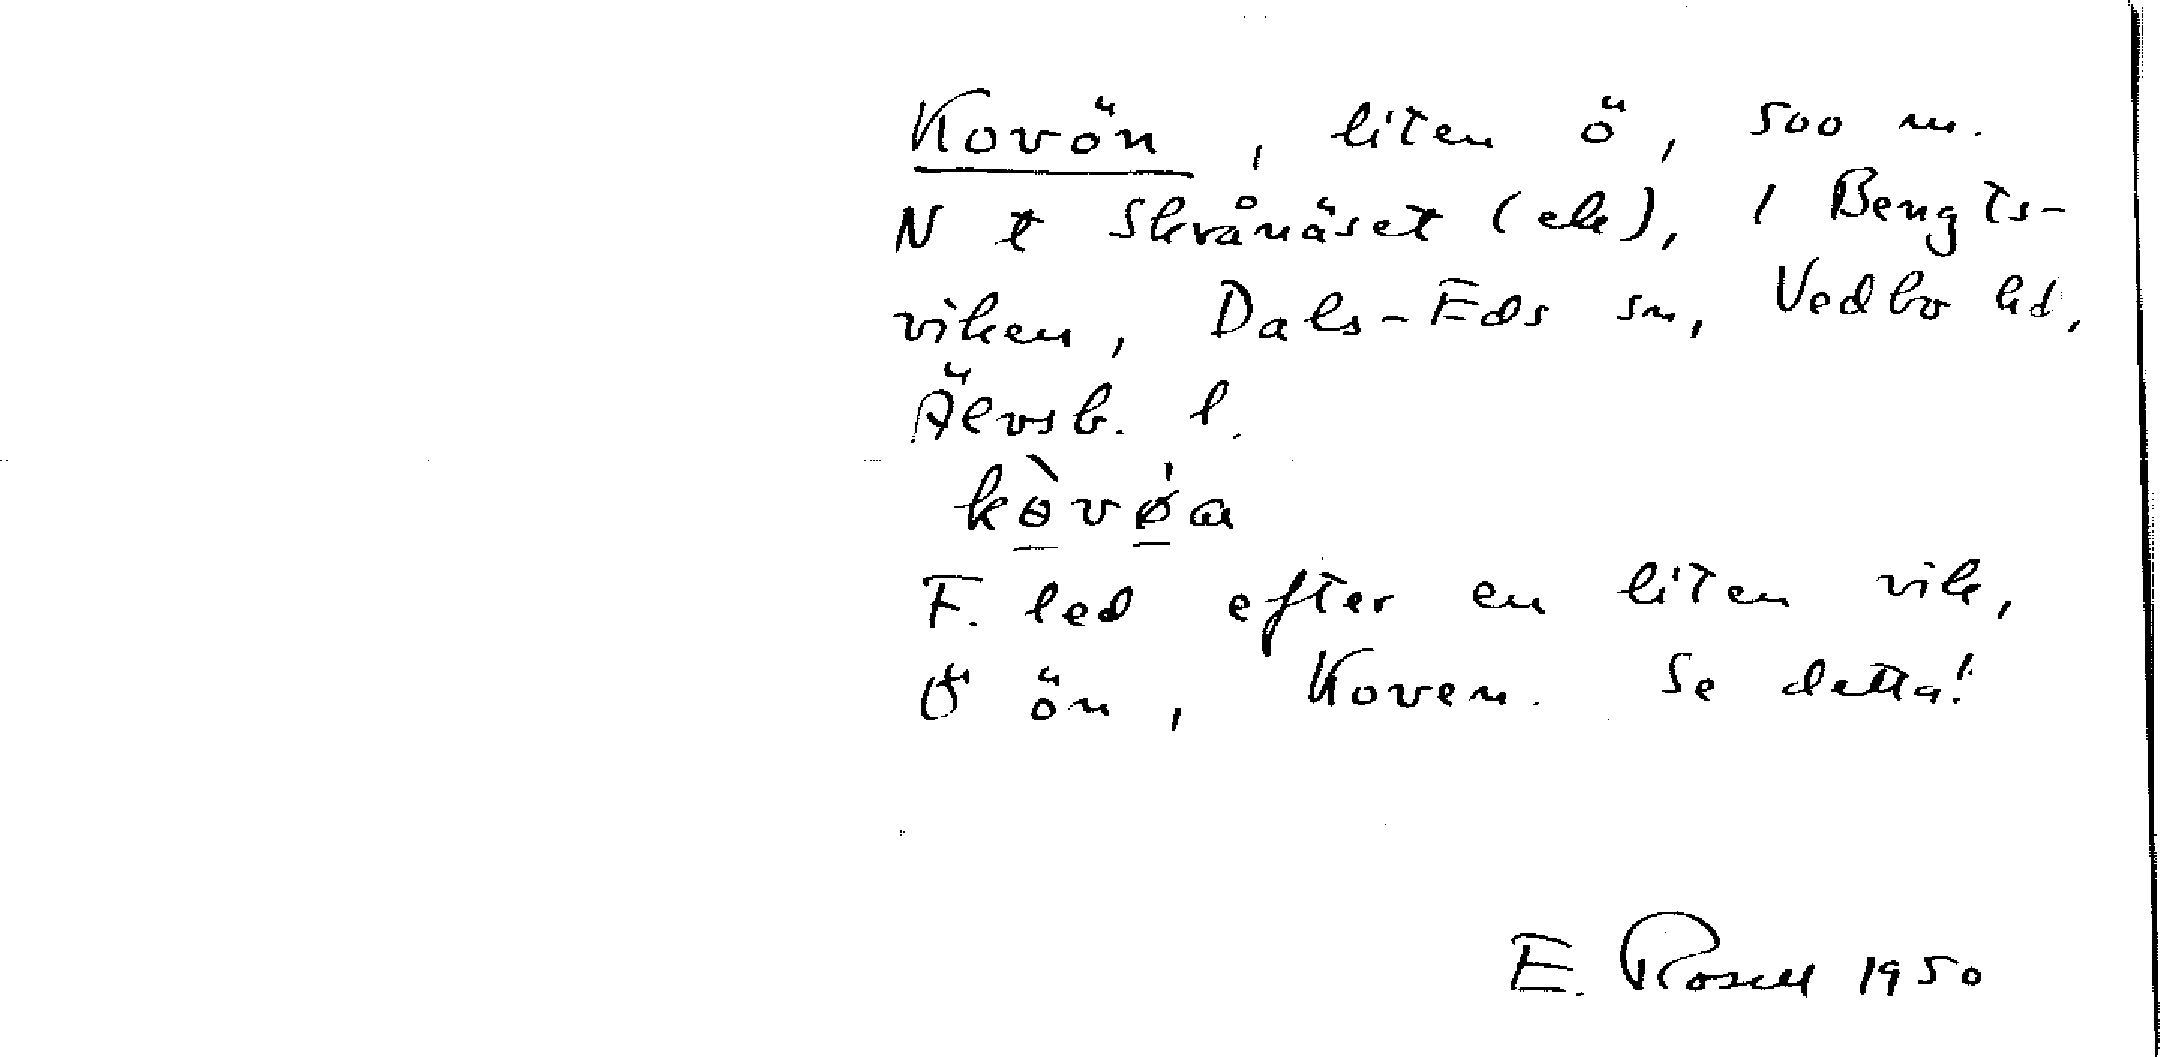 Kovön, liten ö, 500 m.
N t Skrånäset (ek), i Bengts-
viken, Dals-Eds sn, Vedbo hd,
Älvsb. l.
kòvǿa
F. led efter en liten vik,
Ö ön, Koven. Se detta!
E. Rosell 1950